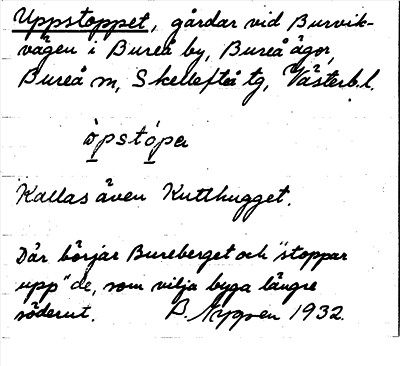 Uppstoppet, gårdar vid Burvik-
vägen i Bureå by, Bureå ägor,
Bureå sn, Skellefteå tg, Västerb.l.
òpstópa
Kallas även Kutthugget.
Där börjar Bureberget och "stoppar
upp" de, som vilja byga längre
söderut. B. Nygren 1932.